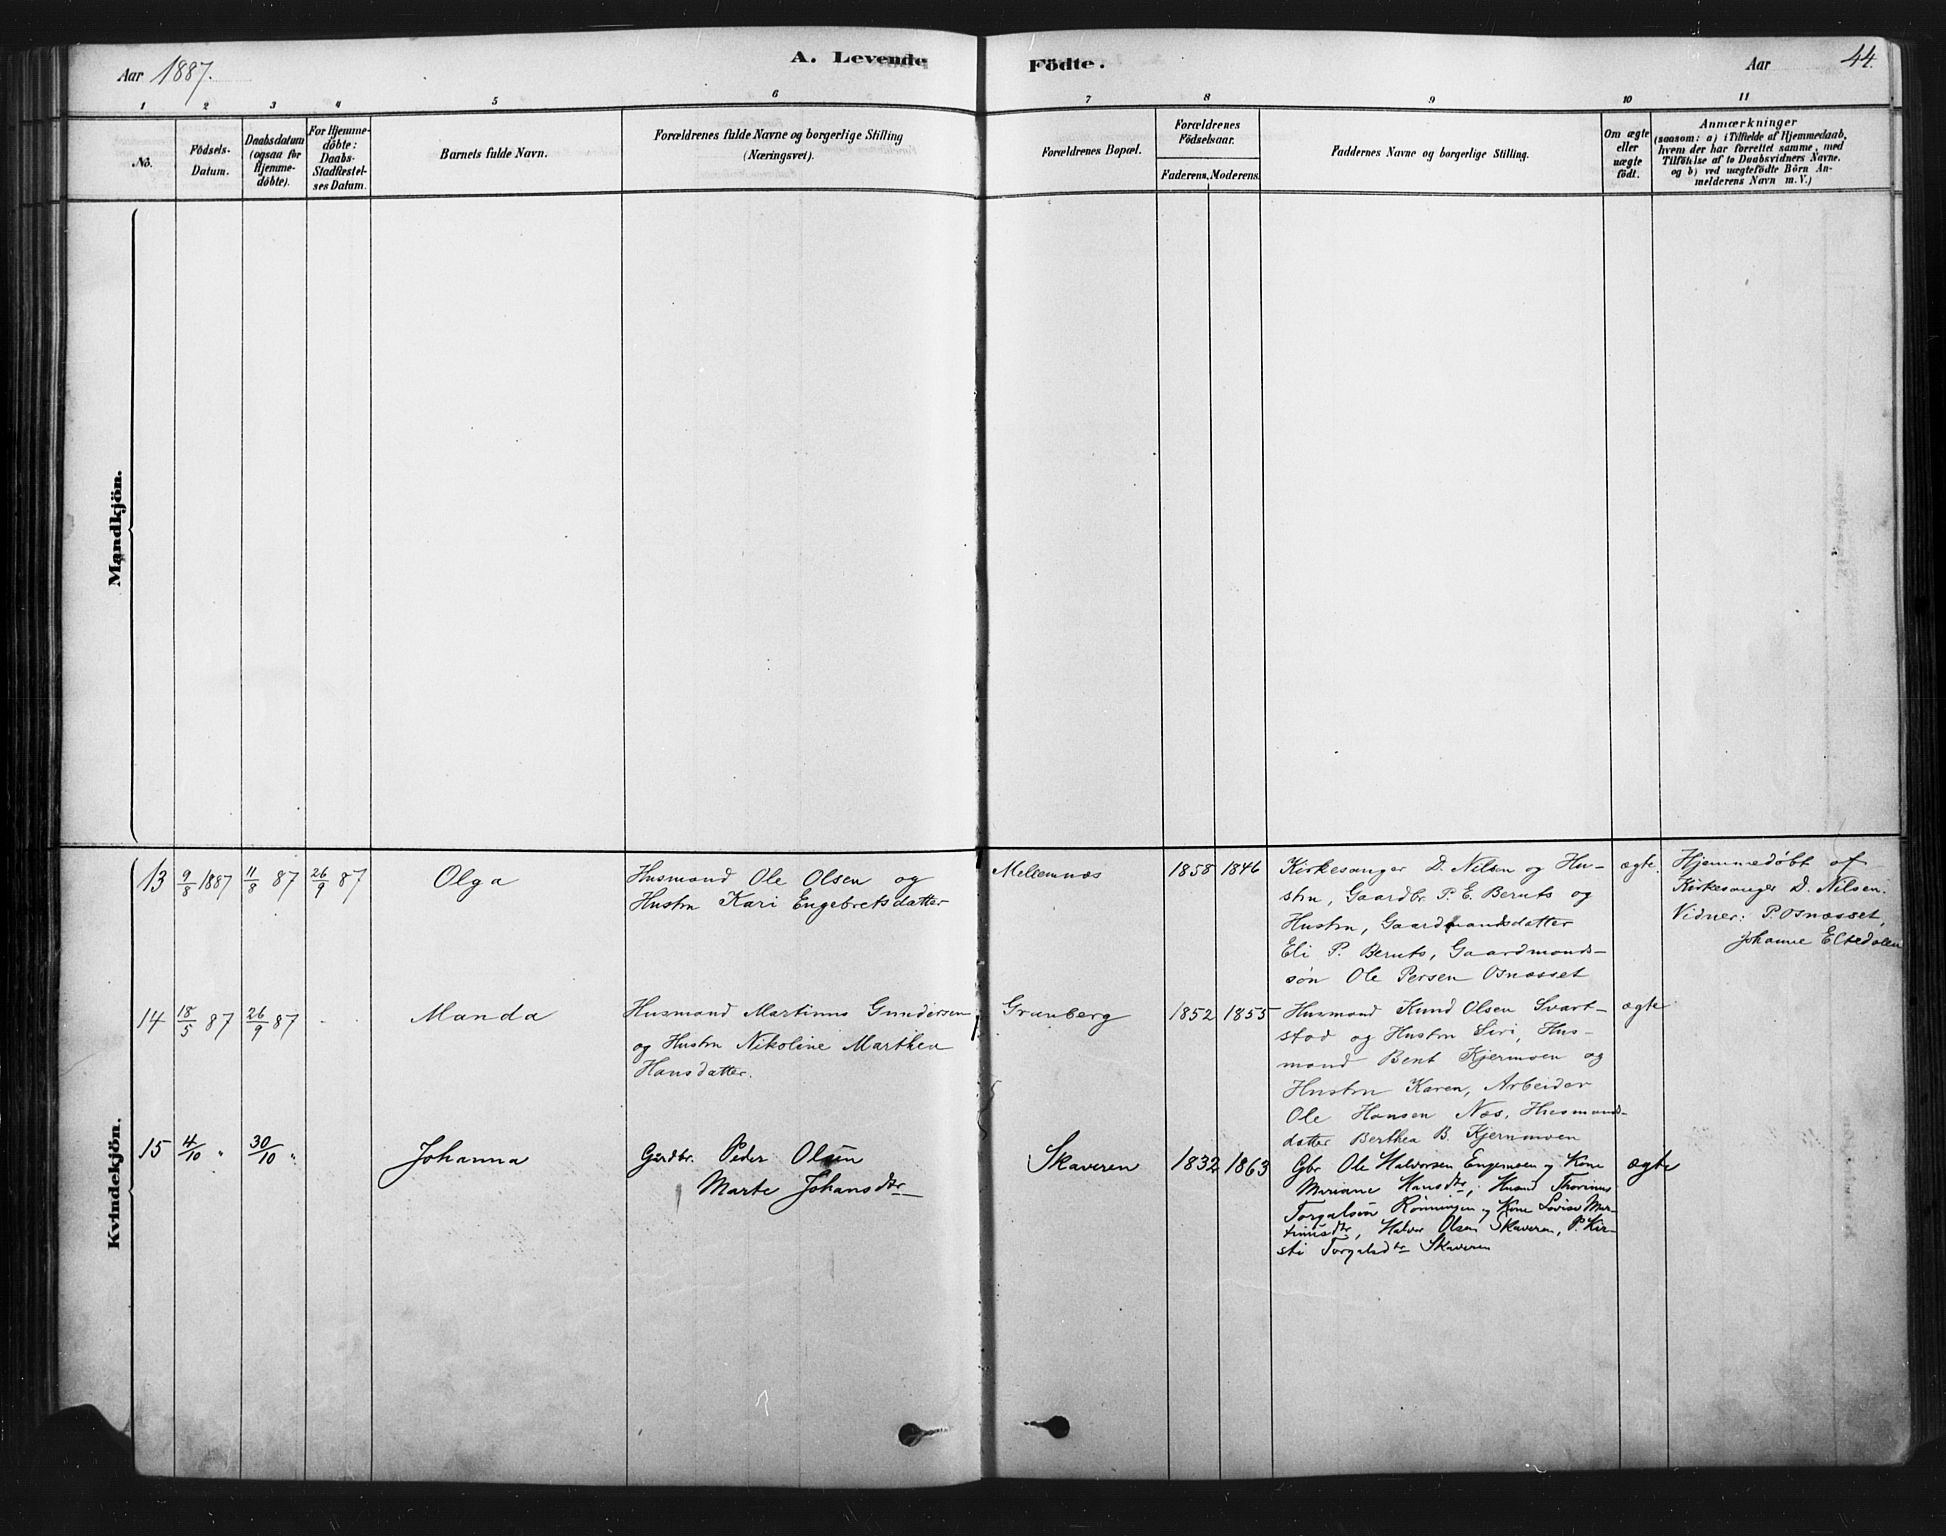 Aar 1887.
A. Levende Födte.
Aar
44.
1 2 3 4 5 6 7 8 9 10 11
No.
Födsels-
Datum.
Daabsdatum
(ogsaa for
Hjemme-
döbte).
For Hjemme-
döbte:
Daabs-
Stadfestel-
ses Datum.
Barnets fulde Navn.
Forældrenes fulde Navne og borgerlige Stilling
(Næringsvei).
Forældrenes Bopæl.
Forældrenes
Födselsaar.
Faderens. Moderens.
Faddernes Navne og borgerlige Stilling.
Om ægte
eller
uægte
födt.
Anmærkninger
(saasom: a) i Tilfælde af Hjemmedaab,
hvem der har forrettet samme, med
Tilföielse af to Daabsvidners Navne.
og b) ved uægtefödte Börn An-
melderens Navn m. V.)
Mandkjön.
Kvindekjön.
13 9/8 1887 11/8 87 26/9 87 Olga
Husmand Ole Olsen og
Hustru Kari Engebretsdatter
Mellemnæs 1858 1846
Kirkesanger D. Nilsen og Hu-
stru, Gaardbr. P. E. Beruts og
Hustru, Gaardmandsdatter
Eli P. Beruts, Gaardmands-
søn Ole Persen Osnæsset
ægte.
Hjemmedøbt af
Kirkesanger D. Nilsen.
Vidner: P. Osnæsset,
Johanne Eltedalen
14 18/5 87 26/9 87 Manda
Husmand Martinus Gundersen
og Hustru Nikoline Marthea
Hansdatter.
Granberg 1852 1855
Husmand Knud Olsen Svart-
stad og Hustru Siri, Hus-
mand Bent Kjernmoen og
Hustru Karen, Arbeider
Ole Hansen Næs, Husmands-
datter Berthea B. Kjernmoen
ægte
15 4/10 " 30/10 " Johanna
Gaardbr. Peder Olsen
Marte Johansdtr
Skaveren 1832 1863
Gbr Ole Halvorsen Engemoen og Kone
Mariane Hansdtr, Husmd Thorinus
Torgalsen Rönningen og Kone Lovise Mar-
tinusdtr, Halvor Olsen Skaveren, P. Kir-
sti Torgalsdtr Skaveren
ægte